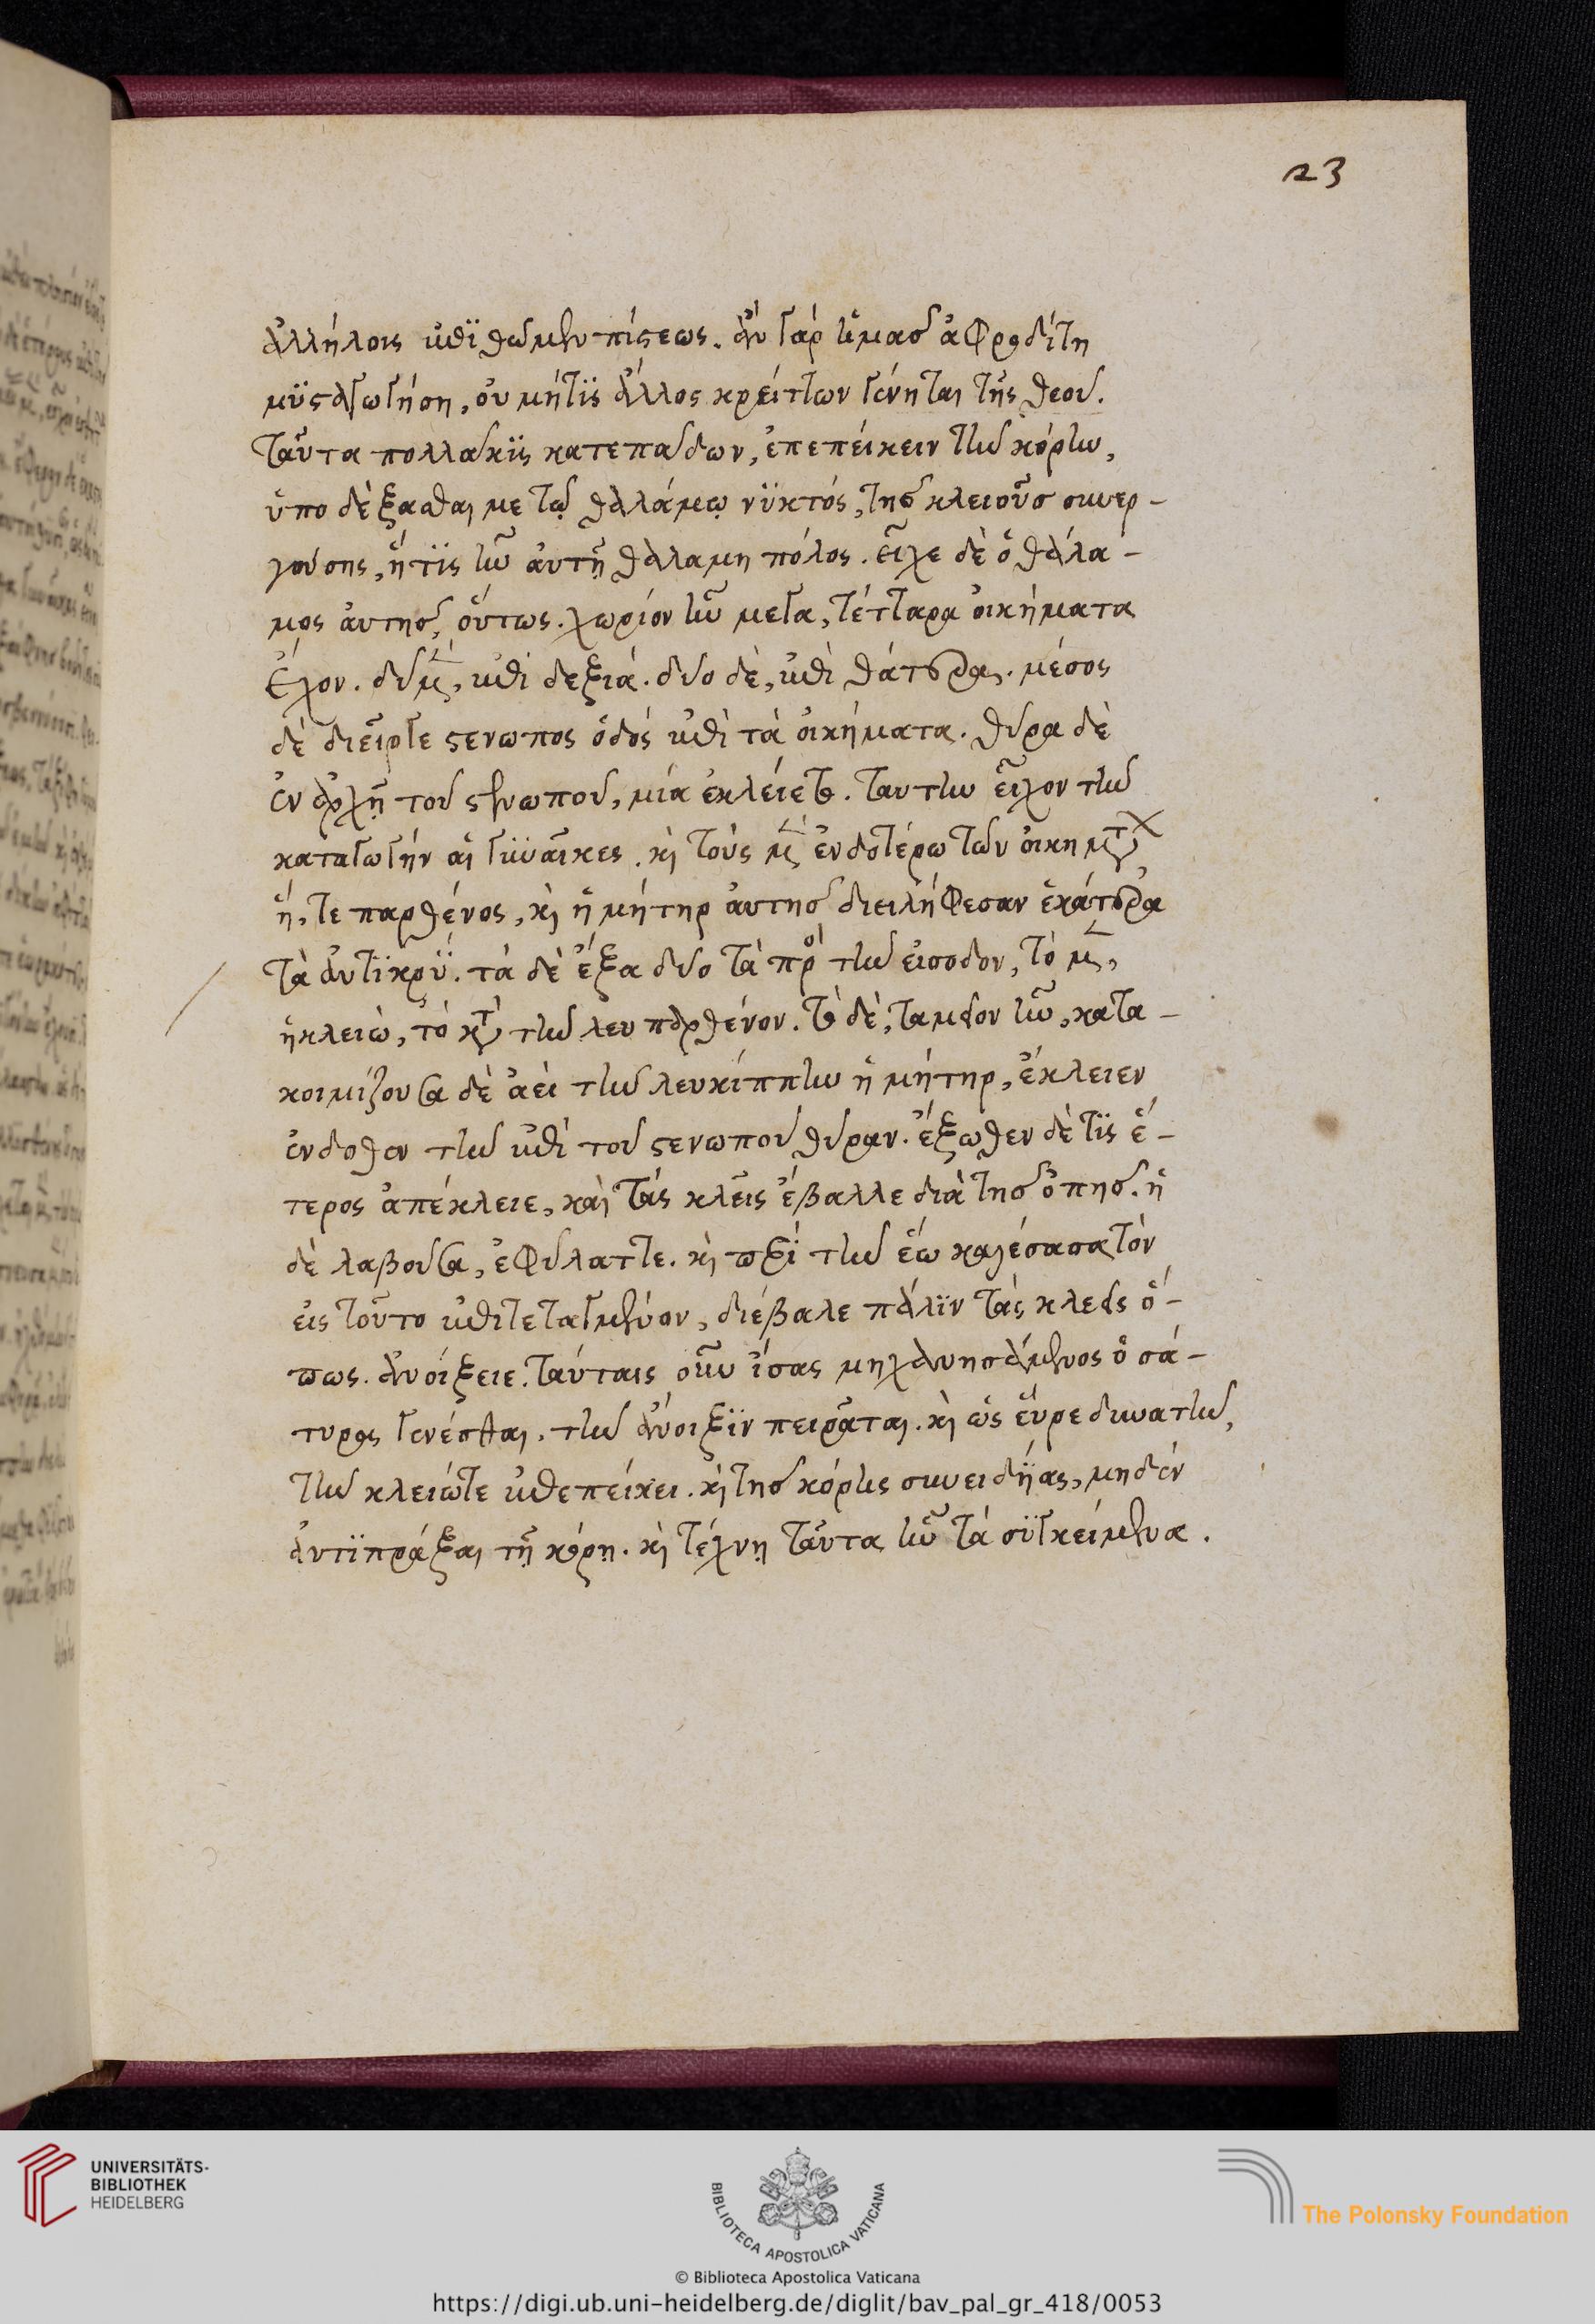 23
ἀλλήλοις ἐπιθῶμεν πίστεως. ἂν γὰρ ἡμᾶς ἀφροδίτη
μυσταγωγήση, οὐ μήτις ἄλλος κρείττων γένηται τῆς θεοῦ.
ταῦτα πολλάκις κατεπάδων, ἐπεπείκειν τὴν κόρην,
ὑποδέξασθαι με τῷ θαλάμῳ νυκτός, τῆς κλειοῦς συνερ-
γούσης, ἥτις ἦν αὐτῇ θαλαμηπόλος. εἶχε δὲ ὁ θάλα-
μος αὐτῆς, οὕτως. χωρίον ἦν μέγα, τέτταρα οἰκήματα
ἔχον. δύο μὲν, ἐπὶ δεξιά. δύο δὲ, ἐπὶ θάτερα. μέσος
δὲ διεῖργε στενωπὸς ὁδός ἐπὶ τὰ οἰκήματα. θύρα δὲ
ἐν ἀρχῇ τοῦ στενωποῦ, μία ἐκλείετο. ταύτην εἶχον τὴν
καταγωγήν αἱ γυναῖκες. καὶ τοὺς μὲν ἐνδοτέρω τῶν οἰκημάτων
ἥ, τε παρθένος, καὶ ἡ μήτηρ αὐτῆς διειλήφεσαν ἑκάτερα
τὰ ἀντικρύ. τὰ δὲ ἔξα δύο τὰ πρὸ τὴν εἴσοδον, τὸ μὲν,
ἡ κλειὼ, τὸ κατὰ τὴν λευ παρθένον. τὸ δὲ, ταμεῖον ἦν, κατα-
κοιμίζουσα δὲ ἀεὶ τὴν λευκίππην ἡ μήτηρ, ἔκλειεν
ἔνδοθεν τὴν ἐπὶ τοῦ στενωποῦ θύραν. ἔξωθεν δὲ τις ἕ-
τερος ἀπέκλειε, καὶ τὰς κλεῖς ἔβαλλε διὰ τῆς ὀπῆς. ἡ
δὲ λαβοῦσα, ἐφύλαττε. καὶ περὶ τὴν ἕω καλέσασα τὸν
εἰς τοῦτο ἐπιτεταγμένον, διέβαλε πάλιν τὰς κλεῖς ὅ-
πως. ἀνοίξειε. ταύταις οὖν ἴσας μηχανησάμενος ὁ σά-
τυρος γενέσθαι. τὴν ἄνοιξιν πειρᾶται. καὶ ὡς εὗρε δυνατὴν,
τὴν κλειώτε ἐπεπείκει. καὶ τῆς κόρης συνειδυίας, μηδὲν
ἀντιπράξαι τῇ κόρῃ. καὶ τέχνῃ ταῦτα ἦν τὰ συγκείμενα.
UNIVERSITÄTS-
BIBLIOTHEK
HEIDELBERG
BIBLIOTECA APOSTOLICA VATICANA
The Polonsky Foundation
© Biblioteca Apostolica Vaticana
https://digi.ub.uni-heidelberg.de/diglit/bav_pal_gr_418/0053